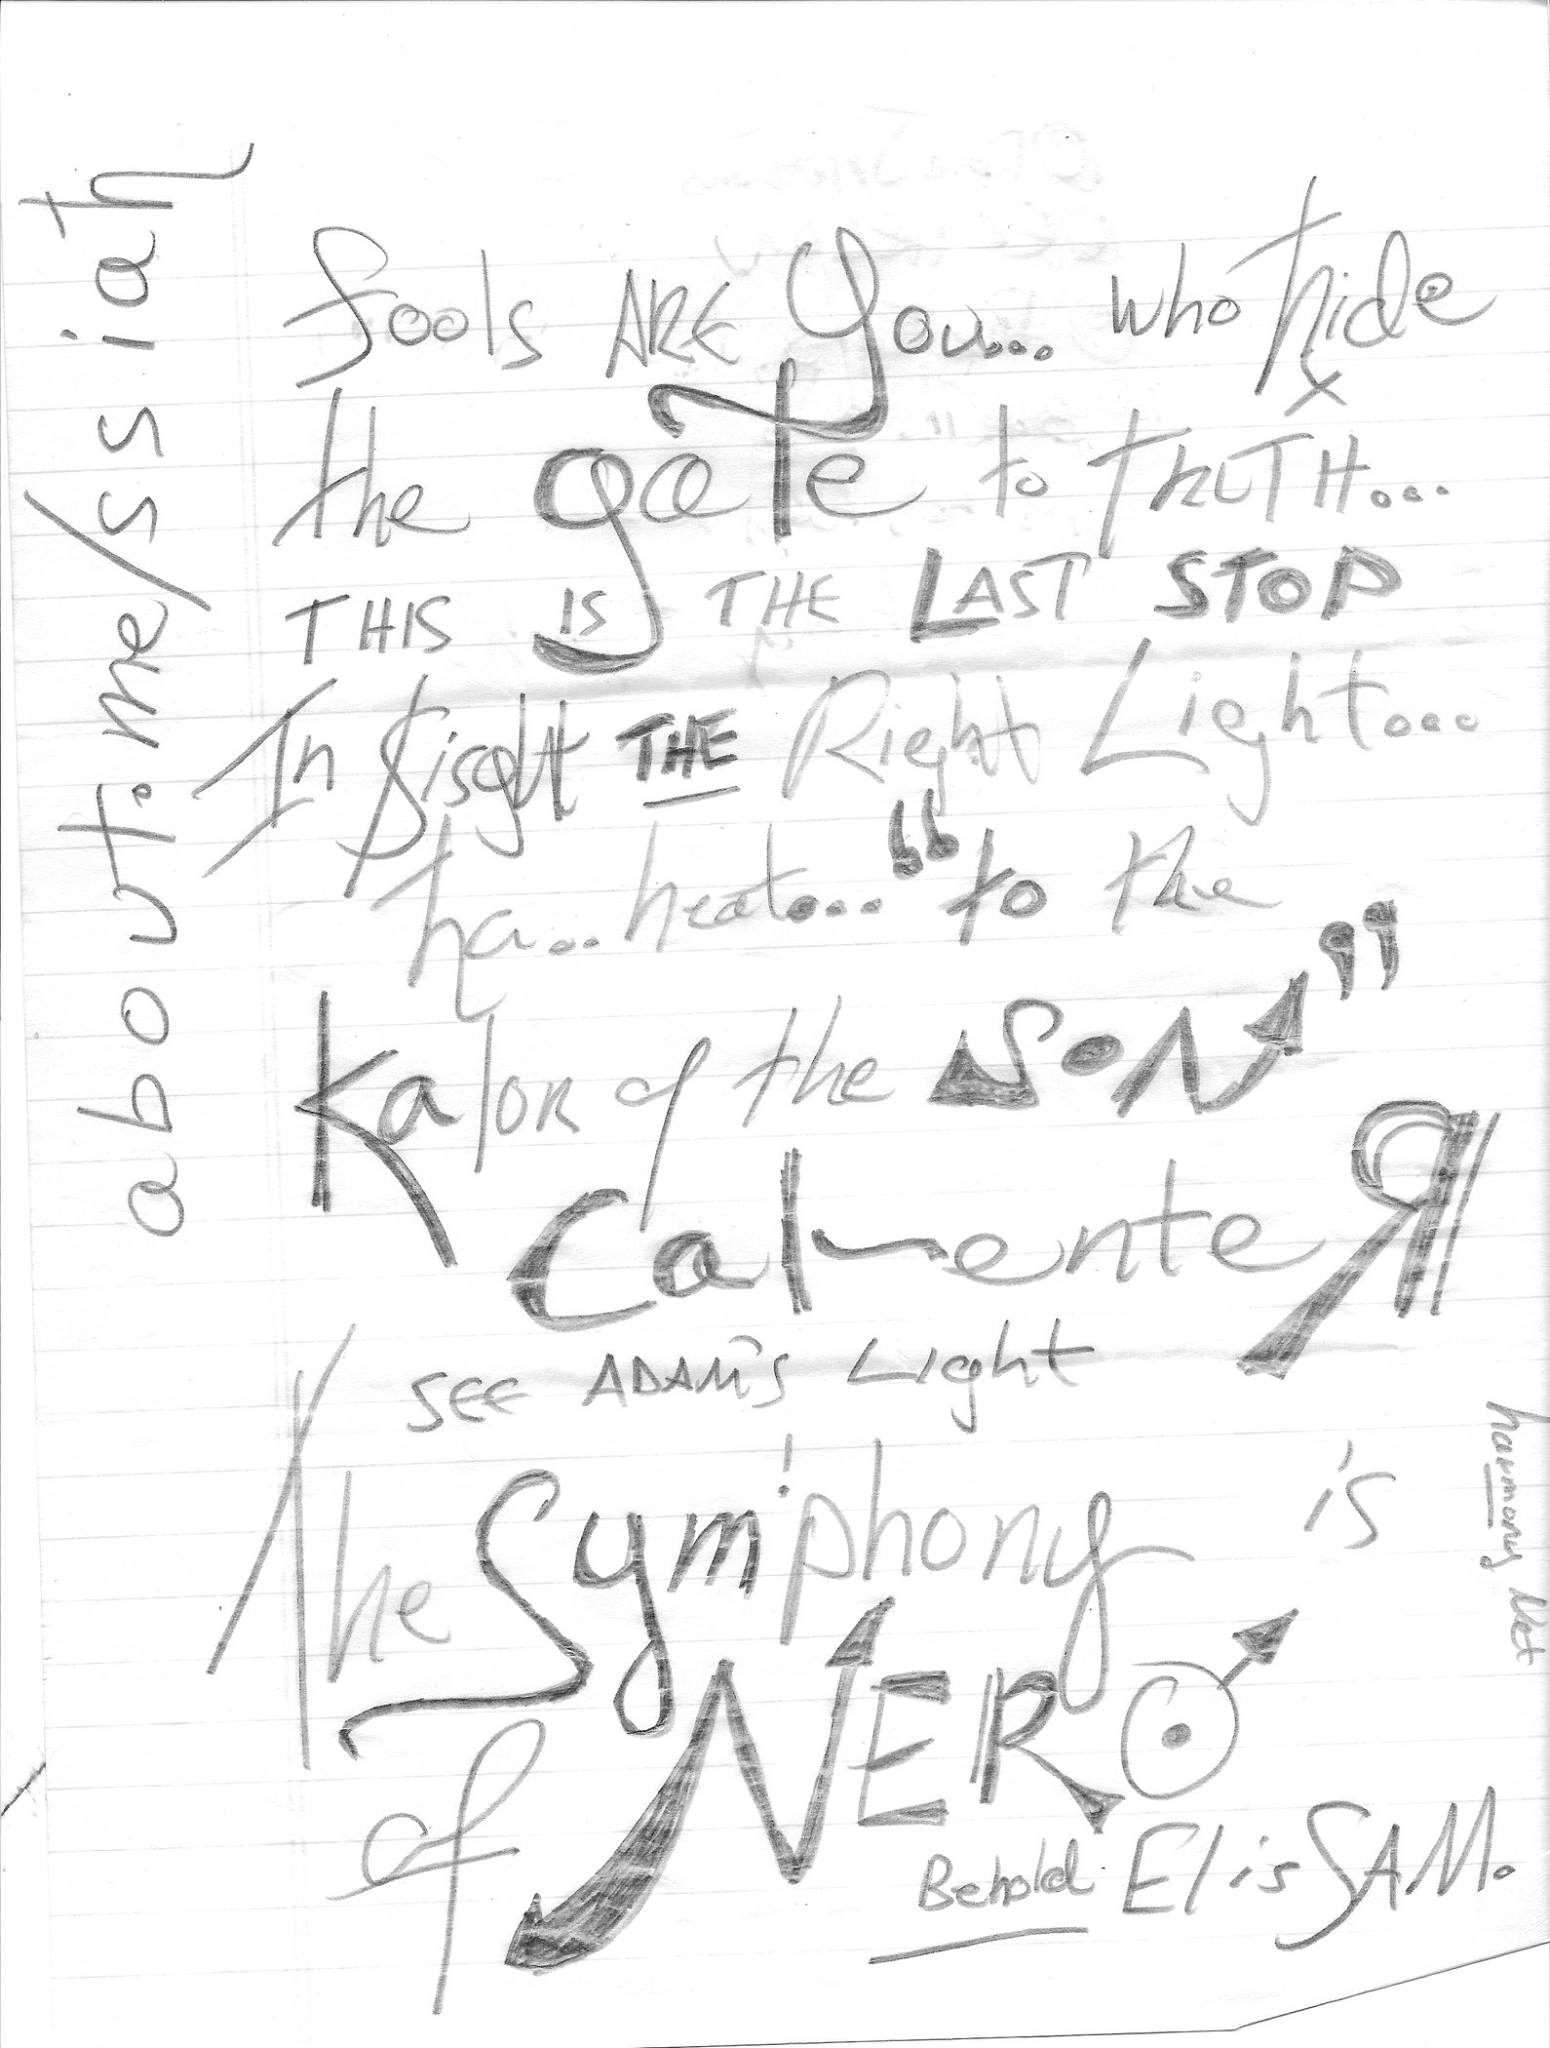 about.me/ssiah
fools ARE You... who hide
the gaTe to TRUTH...
THIS IS THE LAST STOP
In THE Right Light...
ha... heat... “to the
Kalor of the SON”
SEE ADAM'S Light
The Symphony is
of NERO
Behold El is SAM.
harmony Net